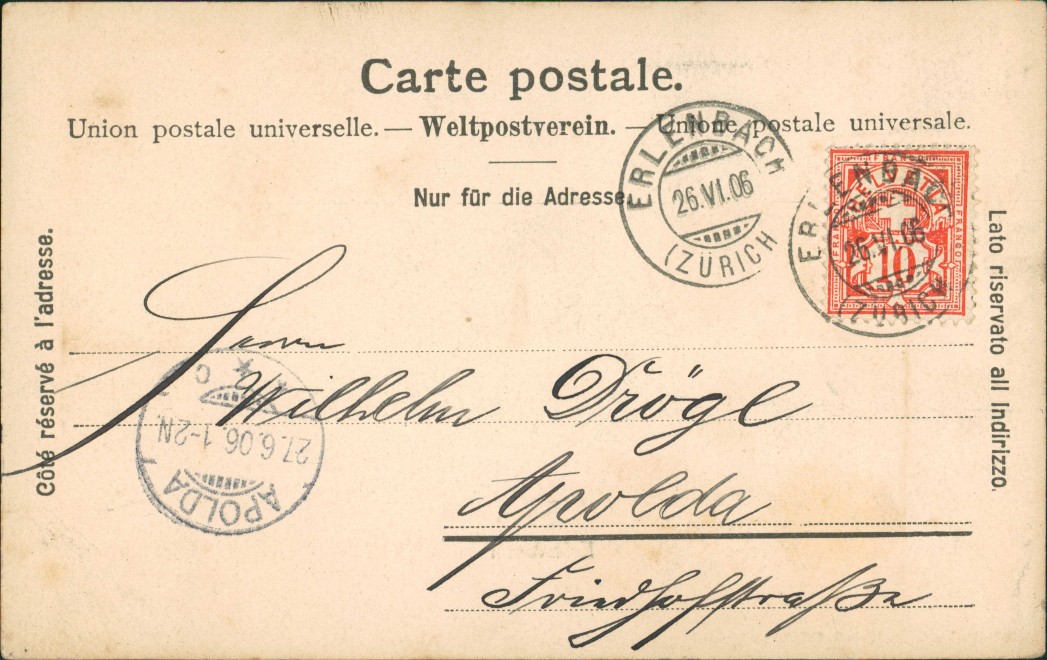 Carte postale.
Union postale universelle. — Weltpostverein. — Unione postale universale.
Nur für die Adresse.
Côté réservé à l'adresse.
Lato riservato all Indirizzo.
ERLENBACH
26.VI.06
(ZÜRICH
FRANCO
HELVETIA
FRANCO
FRANCO
10
ERLENBACH
26.VI.06
(ZÜRICH
Herrn
Wilhelm Drögl
Apolda
Friedhofstraße
APOLDA
27.6.06.1-2N
* * C